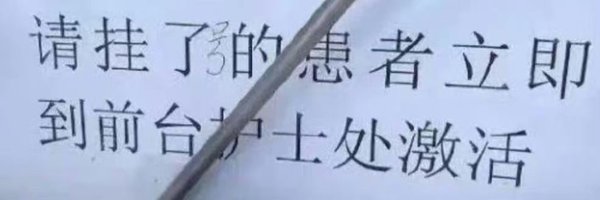 请挂了号的患者立即
到前台护士处激活